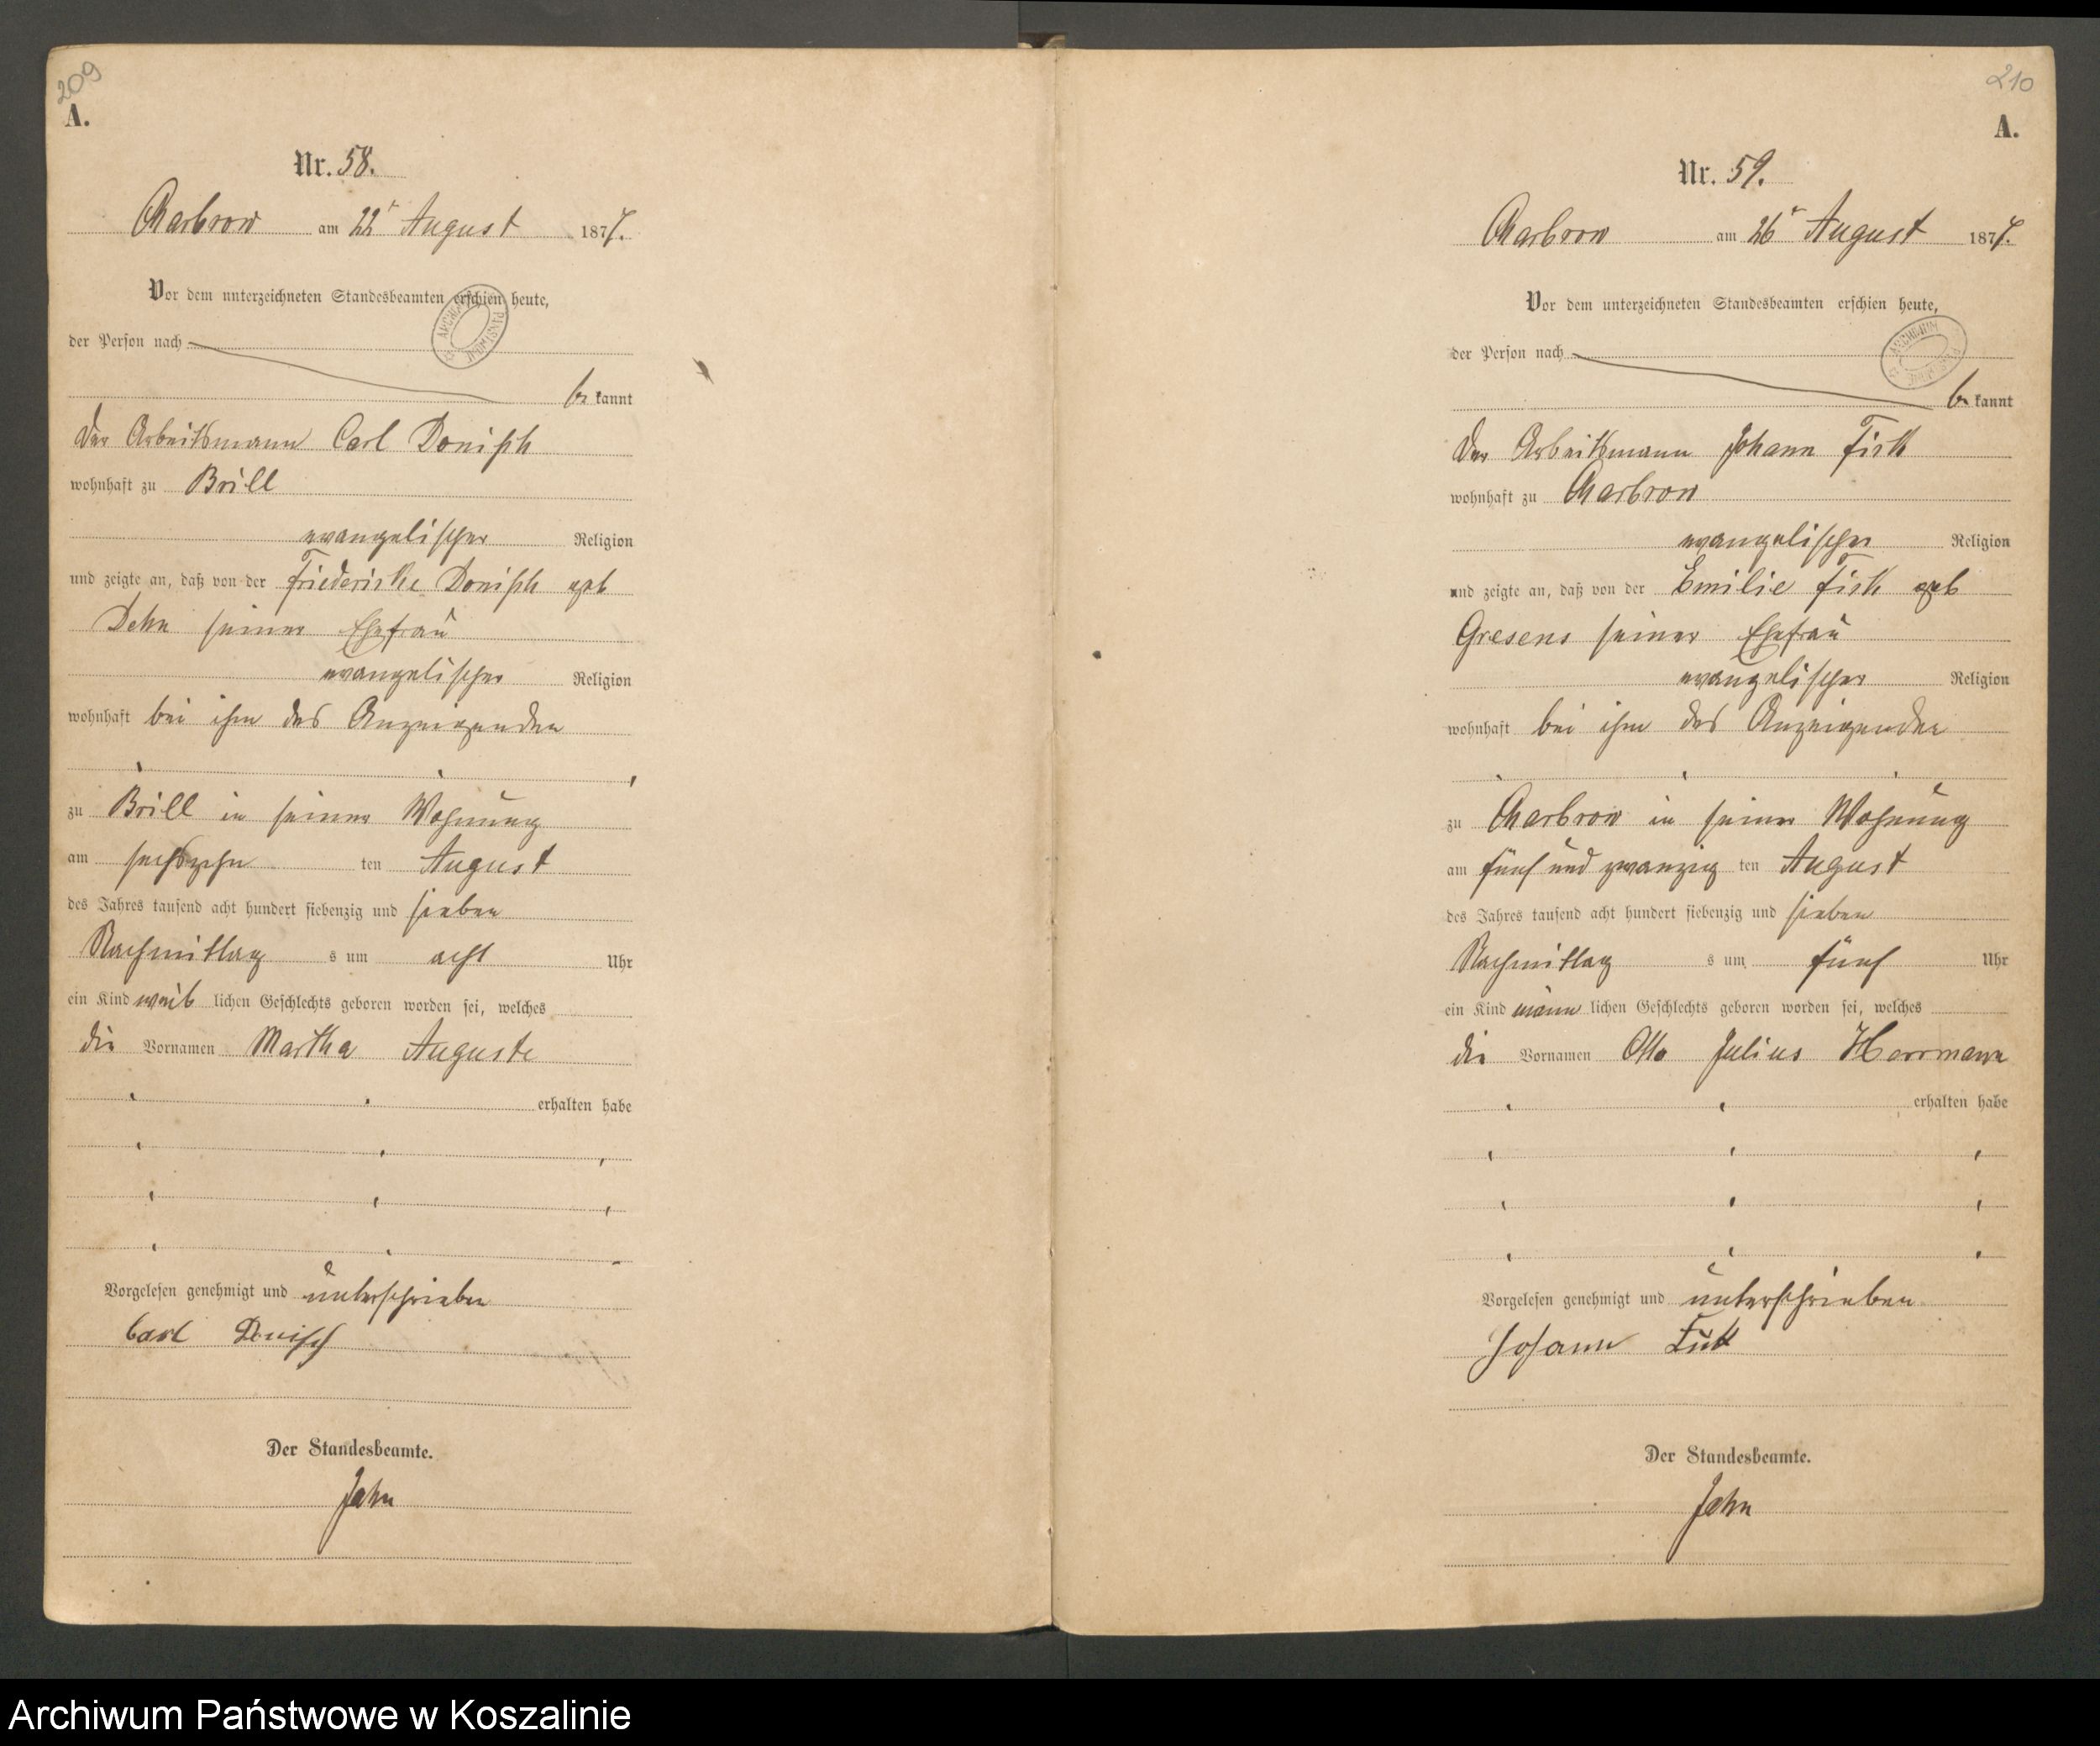 209
A.
Nr. 58.
Charbrow am 22t August 1877.
Vor dem unterzeichneten Standesbeamten erschien heute,
der Person nach
be kannt
der Arbeitsmann Carl
wohnhaft zu Brill
evangelischer Religion
und zeigte an, daß von der Friederike geb
Dehn seiner Ehefrau
evangelischer Religion
wohnhaft bei ihm des Anzeigenden
zu Brill in seiner Wohnung
am sechszehn ten August
des Jahres tausend acht hundert siebenzig und sieben
Nachmittag s um acht Uhr
ein Kind weib lichen Geschlechts geboren worden sei, welches
die Vornamen Martha Auguste
erhalten habe
Vorgelesen genehmigt und unterschrieben
Carl
Der Standesbeamte.
Jahn
210
A.
Nr. 59.
Charbrow am 26t August 1877.
Vor dem unterzeichneten Standesbeamten erschien heute,
der Person nach
be kannt
der Arbeitsmann Johann
wohnhaft zu Charbrow
evangelischer Religion
und zeigte an, daß von der Emilie geb
Gresens seiner Ehefrau
evangelischer Religion
wohnhaft bei ihm des Anzeigenden
zu Charbrow in seiner Wohnung
am fünf und zwanzig ten August
des Jahres tausend acht hundert siebenzig und sieben
Nachmittag s um fünf Uhr
ein Kind männ lichen Geschlechts geboren worden sei, welches
die Vornamen Otto Julius Herrmann
erhalten habe
Vorgelesen genehmigt und unterschrieben
Johann
Der Standesbeamte.
Jahn
Archiwum Państwowe w Koszalinie